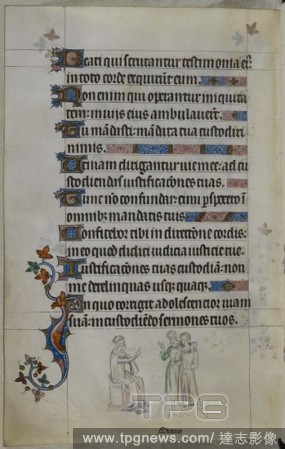 Beati qui scrutantur testimonia ei⁹:
in toto corde exquirūt eum.
Non enim qui operantur iniquita
tem: in vijs eius ambulauerūt.
Tu mādasti: mādata tua custodiri
nimis.
Utinam dirigantur uie mee: ad cu
stodiendas iustificatōnes tuas.
Tunc nō confundar: cum pspexero ī
omnibȝ mandatis tuis
Confitebor tibi in directōne cordis:
in eo quod didici iudicia iusticie tue.
Iustificatōnes tuas custodiam: non
me derelinquas usqȝ quaqȝ.
In quo corrigit adolescencior uiam
suā: in custodiēdo sermones tuos.
TPG
www.tpgnews.com / 達志影像